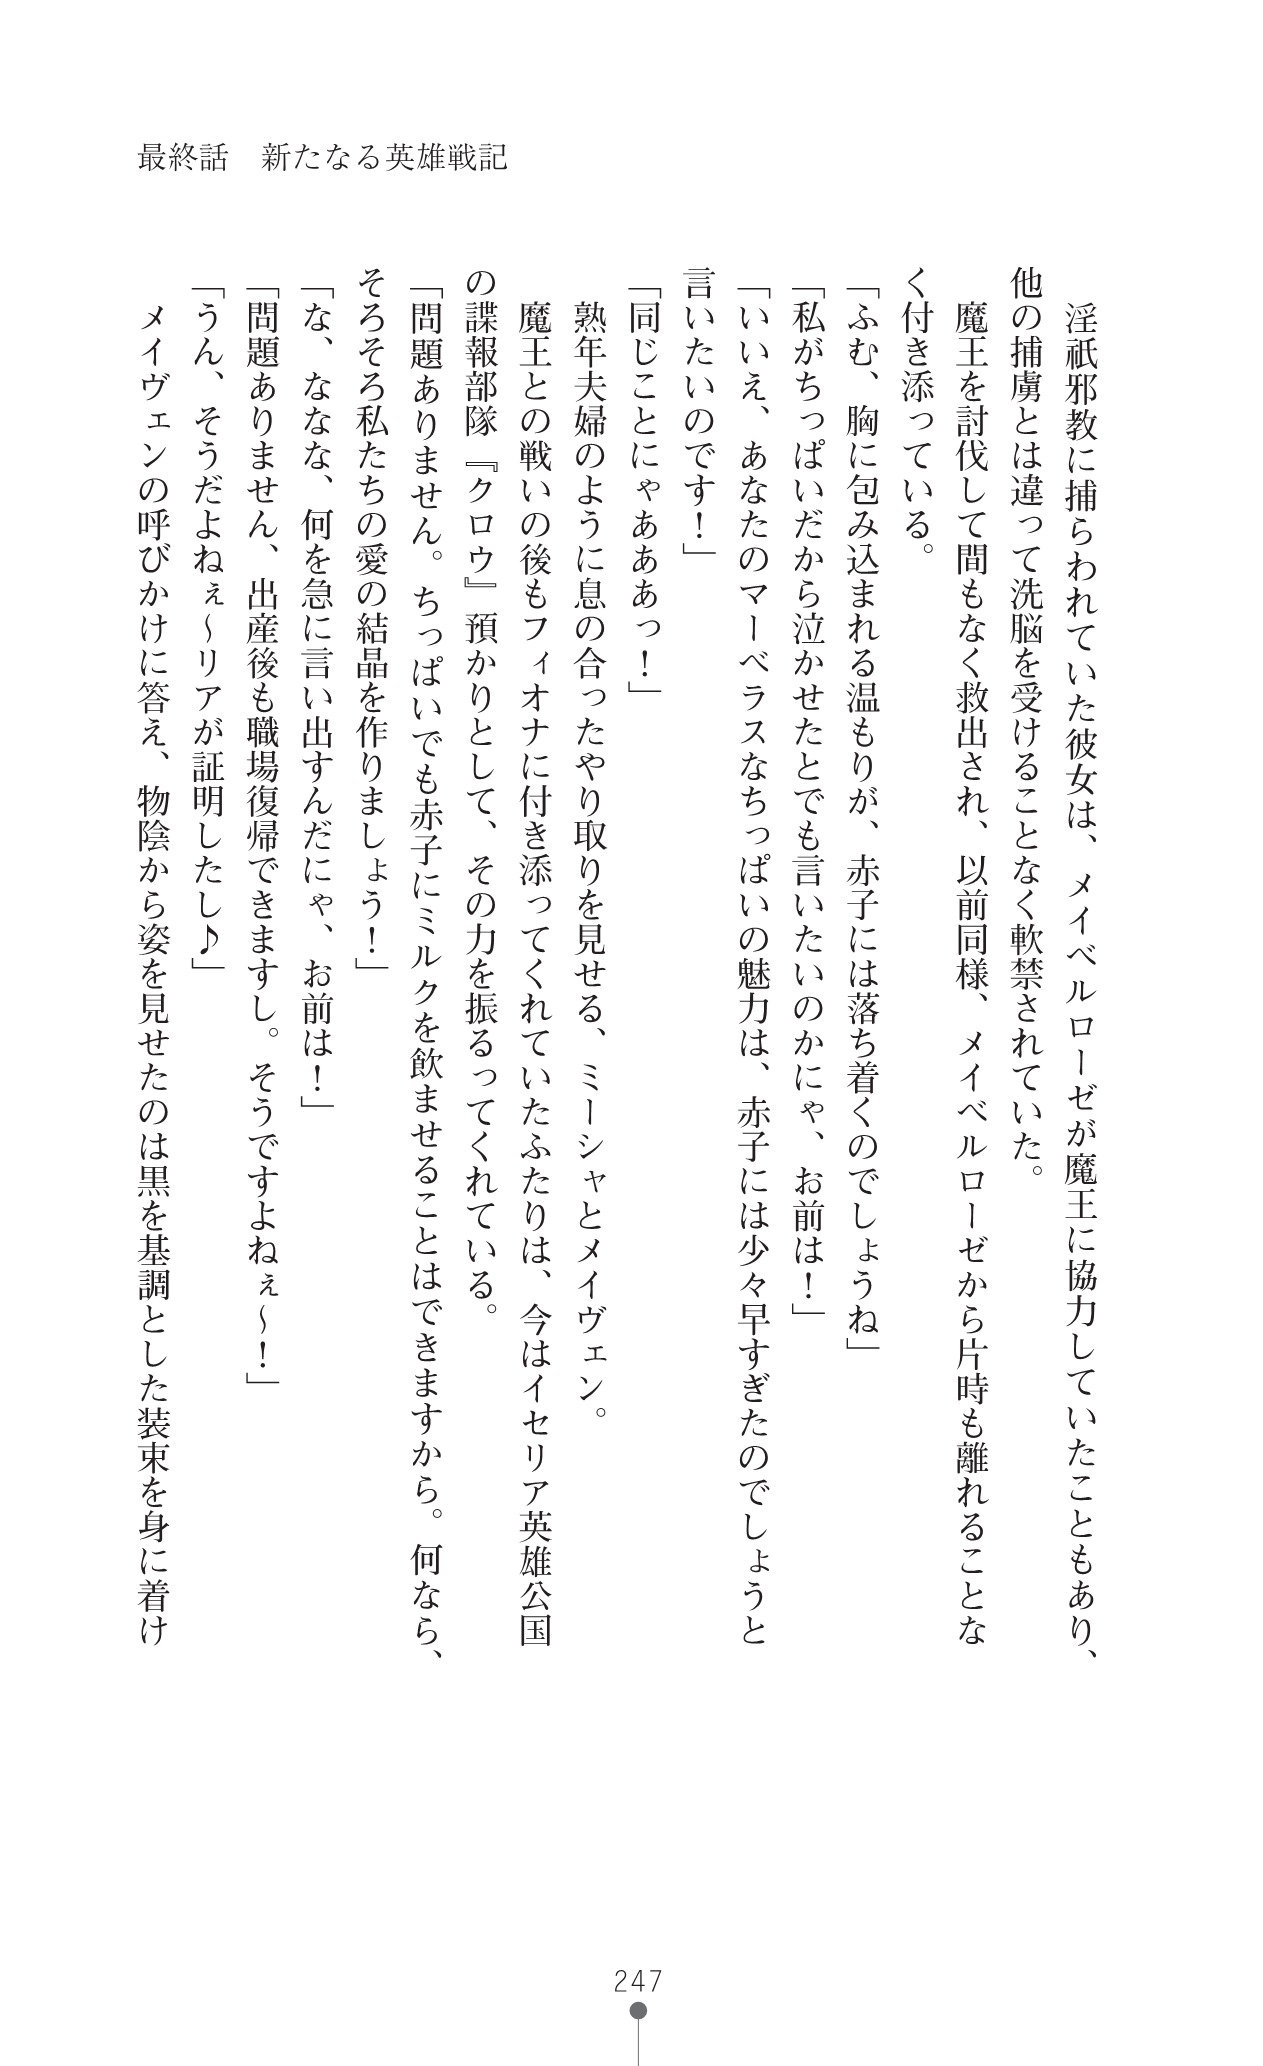 最終話　新たなる英雄戦記
　淫祇邪教に捕らわれていた彼女は、メイベルローゼが魔王に協力していたこともあり、
他の捕虜とは違って洗脳を受けることなく軟禁されていた。
　魔王を討伐して間もなく救出され、以前同様、メイベルローゼから片時も離れることな
く付き添っている。
「ふむ、胸に包み込まれる温もりが、赤子には落ち着くのでしょうね」
「私がちっぱいだから泣かせたとでも言いたいのかにゃ、お前は！」
「いいえ、あなたのマーベラスなちっぱいの魅力は、赤子には少々早すぎたのでしょうと
言いたいのです！」
「同じことにゃあああっ！」
　熟年夫婦のように息の合ったやり取りを見せる、ミーシャとメイヴェン。
　魔王との戦いの後もフィオナに付き添ってくれていたふたりは、今はイセリア英雄公国
の諜報部隊『クロウ』預かりとして、その力を振るってくれている。
「問題ありません。ちっぱいでも赤子にミルクを飲ませることはできますから。何なら、
そろそろ私たちの愛の結晶を作りましょう！」
「な、ななな、何を急に言い出すんだにゃ、お前は！」
「問題ありません、出産後も職場復帰できますし。そうですよねぇ〜！」
「うん、そうだよねぇ〜リアが証明したし♪」
　メイヴェンの呼びかけに答え、物陰から姿を見せたのは黒を基調とした装束を身に着け
247